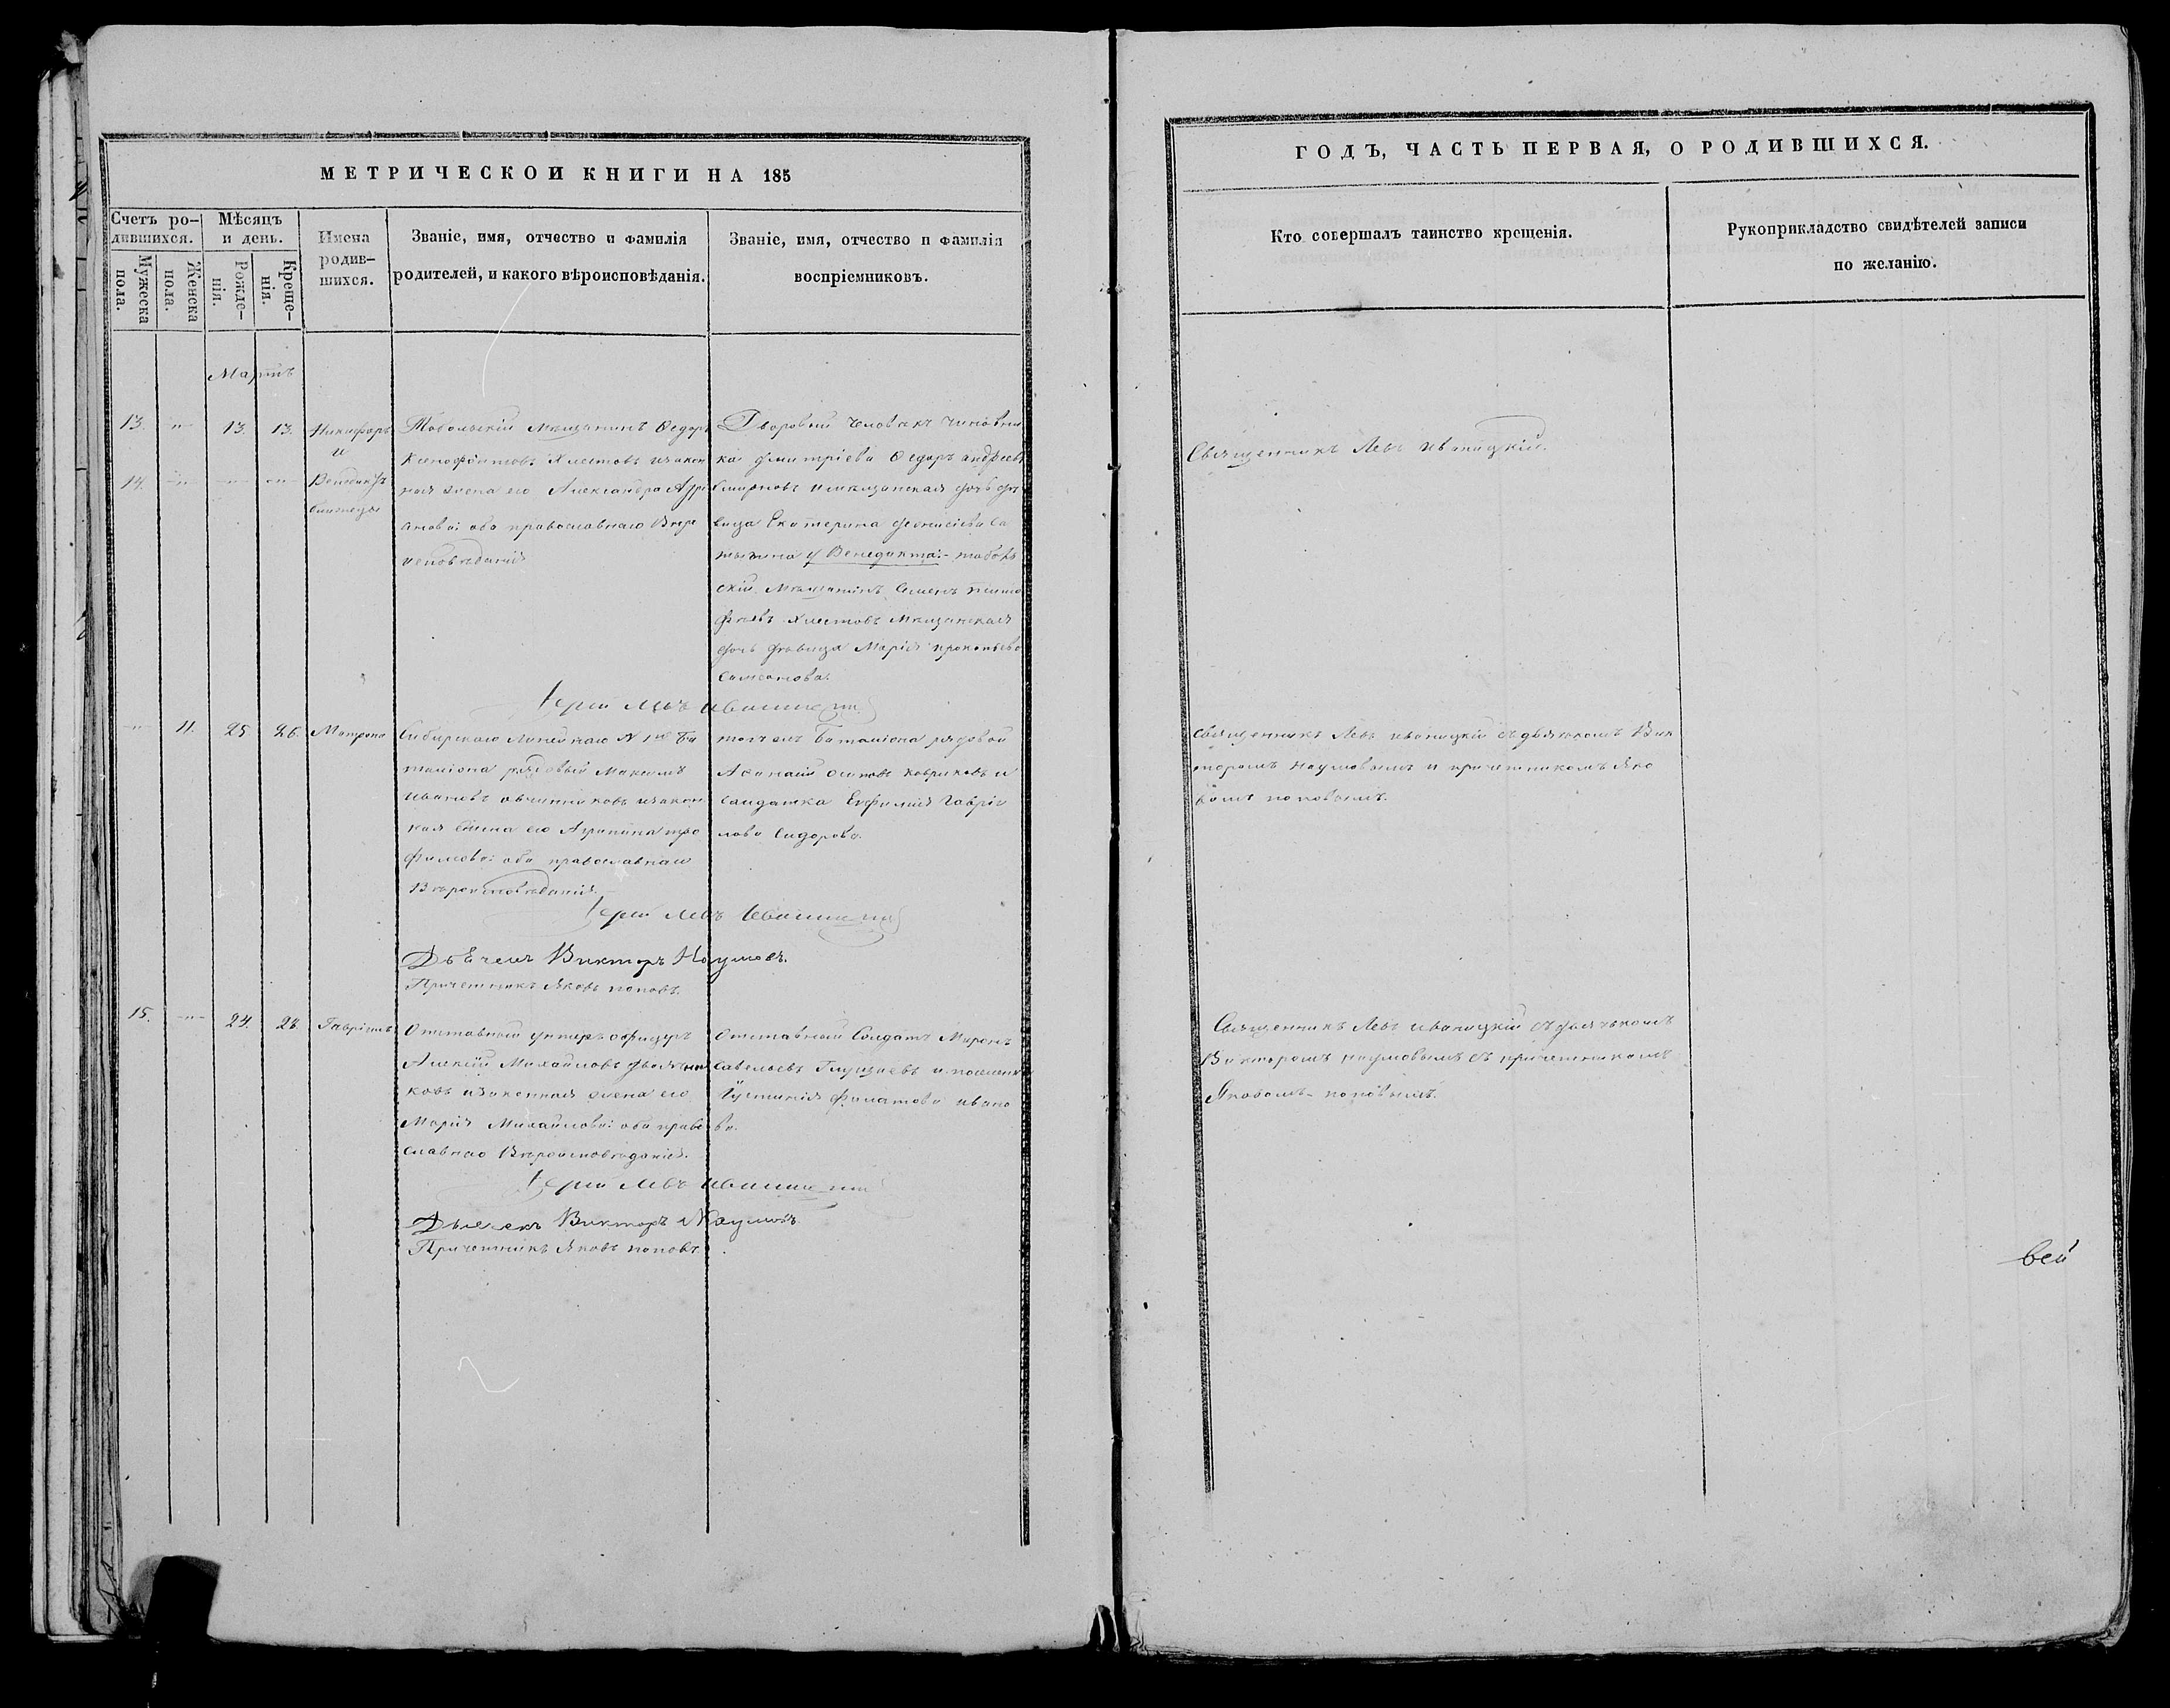 МЕТРИЧЕСКОЙ КНИГИ НА 185
Счетъ ро-
дившихся.
Мѣсяцъ
и день.
Мужеска
пола.
Женска
пола.
Рожде-
нія.
Креще-
нія.
Имена
родив-
шихся.
Званіе, имя, отчество и фамилія
родителей, и какого вѣроисповѣданія.
Званіе, имя, отчество и фамилія
воспріемниковъ.
Мартъ
13. 13. 13. Никифоръ
и
14. Венедиктъ
близнецы
Тобольскій Мѣщанинъ Ѳедоръ
Ксенофонтовъ Хлыстовъ изакон
ная жена его Александра
анова: оба православнаго Вѣро
исповѣданія
Дворовый человѣкъ чиновни
ка Дмитріева Ѳедоръ андреевъ
Смирновъ имѣщанская дочь дѣ
вица Екатерина
у Венедикта:- тоболь
скій Мѣщанинъ Семенъ
Мѣщанская
дочь дѣвица Марія прокопьева
Самсонова.
Іерей Левъ Иваницкій
11. 25 26. Матрона
Сибирскаго Линейнаго N 1го Ба
таліона рядовый Максимъ
Ивановъ овчинниковъ изакон
ная жена его Агрипина тро
фимова: оба православнаго
Вѣроисповѣданія.
тогожъ Баталіона рядовой
осиповъ ковриковъ и
Салдатка Евфимія Гаврі
лова Сидорова.
Іерей Левъ Иваницкій
Дьячекъ Викторъ Наумовъ.
Причетникъ Яковъ поповъ.
15. 24. 28. Гавріилъ
Отставный унтеръ офицеръ
Алексій Михайловъ
ковъ изаконная жена его
Марія Михайлова: оба право
славнаго Вѣроисповѣданія.
Отставный Солдатъ Миронъ
Савельевъ и поселенка
Іустинія Филатова ивано
ва.
Іерей Левъ Иваницкій
Дьячекъ Викторъ Наумовъ.
Причетникъ Яковъ поповъ.
ГОДЪ, ЧАСТЬ ПЕРВАЯ, О РОДИВШИХСЯ.
Кто совершалъ таинство крещенія.
Рукоприкладство свидѣтелей записи
по желанію.
Священникъ Левъ иваницкій.
Священникъ Левъ иваницкій съ дьячкомъ Вик
торомъ наумовымъ и причетникомъ Яко
вомъ поповымъ.
Священникъ Левъ иваницкій съ дьячькомъ
Викторомъ наумовымъ съ причетникомъ
Яковомъ поповымъ.
вей